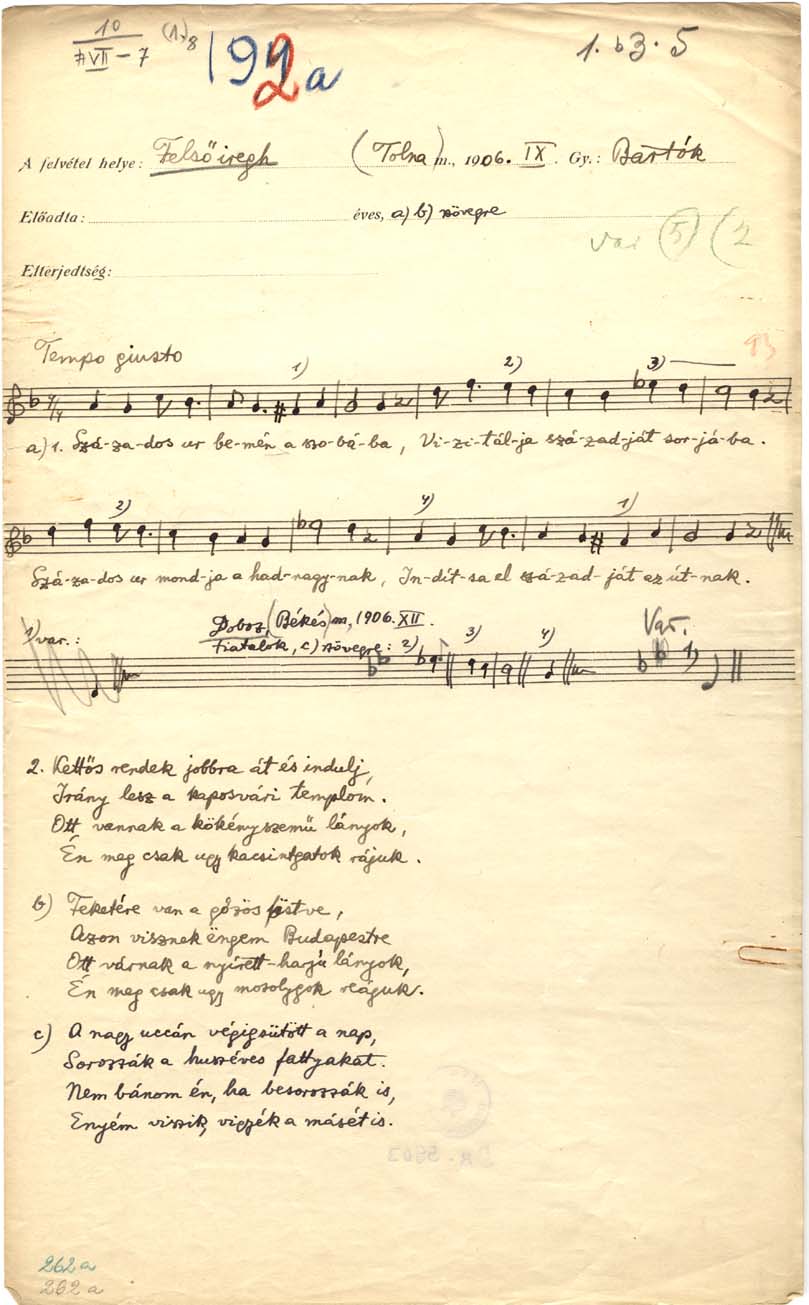 10
XVII – 7
(1.)8
192a
1. b3. 5
A felvétel helye: Felsőiregh (Tolna) m., 1906. IX. Gy.: Bartók
Előadta: éves, a) b) szövegre
var (5) (2
Elterjedtség:
93
Tempo giusto
1) 2) 3)
a) 1. Szá-za-dos ur be-mén a szo-bá-ba, Vi-zi-tál-ja szá-zad-ját sor-já-ba.
2) 4) 1)
Szá-za-dos ur mond-ja a had-nagy-nak, In-dít-sa el szá-zad-ját az út-nak.
1) var.:
Doboz, (Békés) m., 1906. XII.
fiatalok, c) szövegre: 2) 3) 4)
Var.
2. Kettős rendek jobbra át és indulj,
Irány lesz a kaposvári templom.
Ott vannak a kökényszemü lányok,
Én meg csak ugy kacsintgatok rájuk.
b) Feketére van a gőzös föstve,
Azon visznek ëngem Budapestre
Ott várnak a nyírett-hajú lányok,
Én meg csak ugy mosolygok reájuk.
c) A nagy uccán végigsütött a nap,
Sorozzák a huszéves fattyakat.
Nem bánom én, ha besorozzák is,
Enyém viszik, vigyék a másét is.
262a
262a